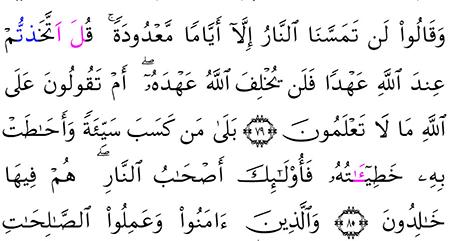 وَقَالُواْ لَن تَمَسَّنَا ٱلنَّارُ إِلَّآ أَيَّامًا مَّعْدُودَةً ۚ قُلَ اَتَّخَذتُّمْ
عِندَ ٱللَّهِ عَهْدًا فَلَن يُخْلِفَ ٱللَّهُ عَهْدَهُۥٓ ۖ أَمْ تَقُولُونَ عَلَى
ٱللَّهِ مَا لَا تَعْلَمُونَ ﴿٧٩﴾ بَلَىٰ مَن كَسَبَ سَيِّئَةً وَأَحَٰطَتْ
بِهِۦ خَطِيٓـَٰٔتُهُۥ فَأُوْلَٰٓئِكَ أَصْحَٰبُ ٱلنَّارِ ۖ هُمْ فِيهَا
خَٰلِدُونَ ﴿٨٠﴾ وَٱلَّذِينَ ءَامَنُواْ وَعَمِلُواْ ٱلصَّٰلِحَٰتِ